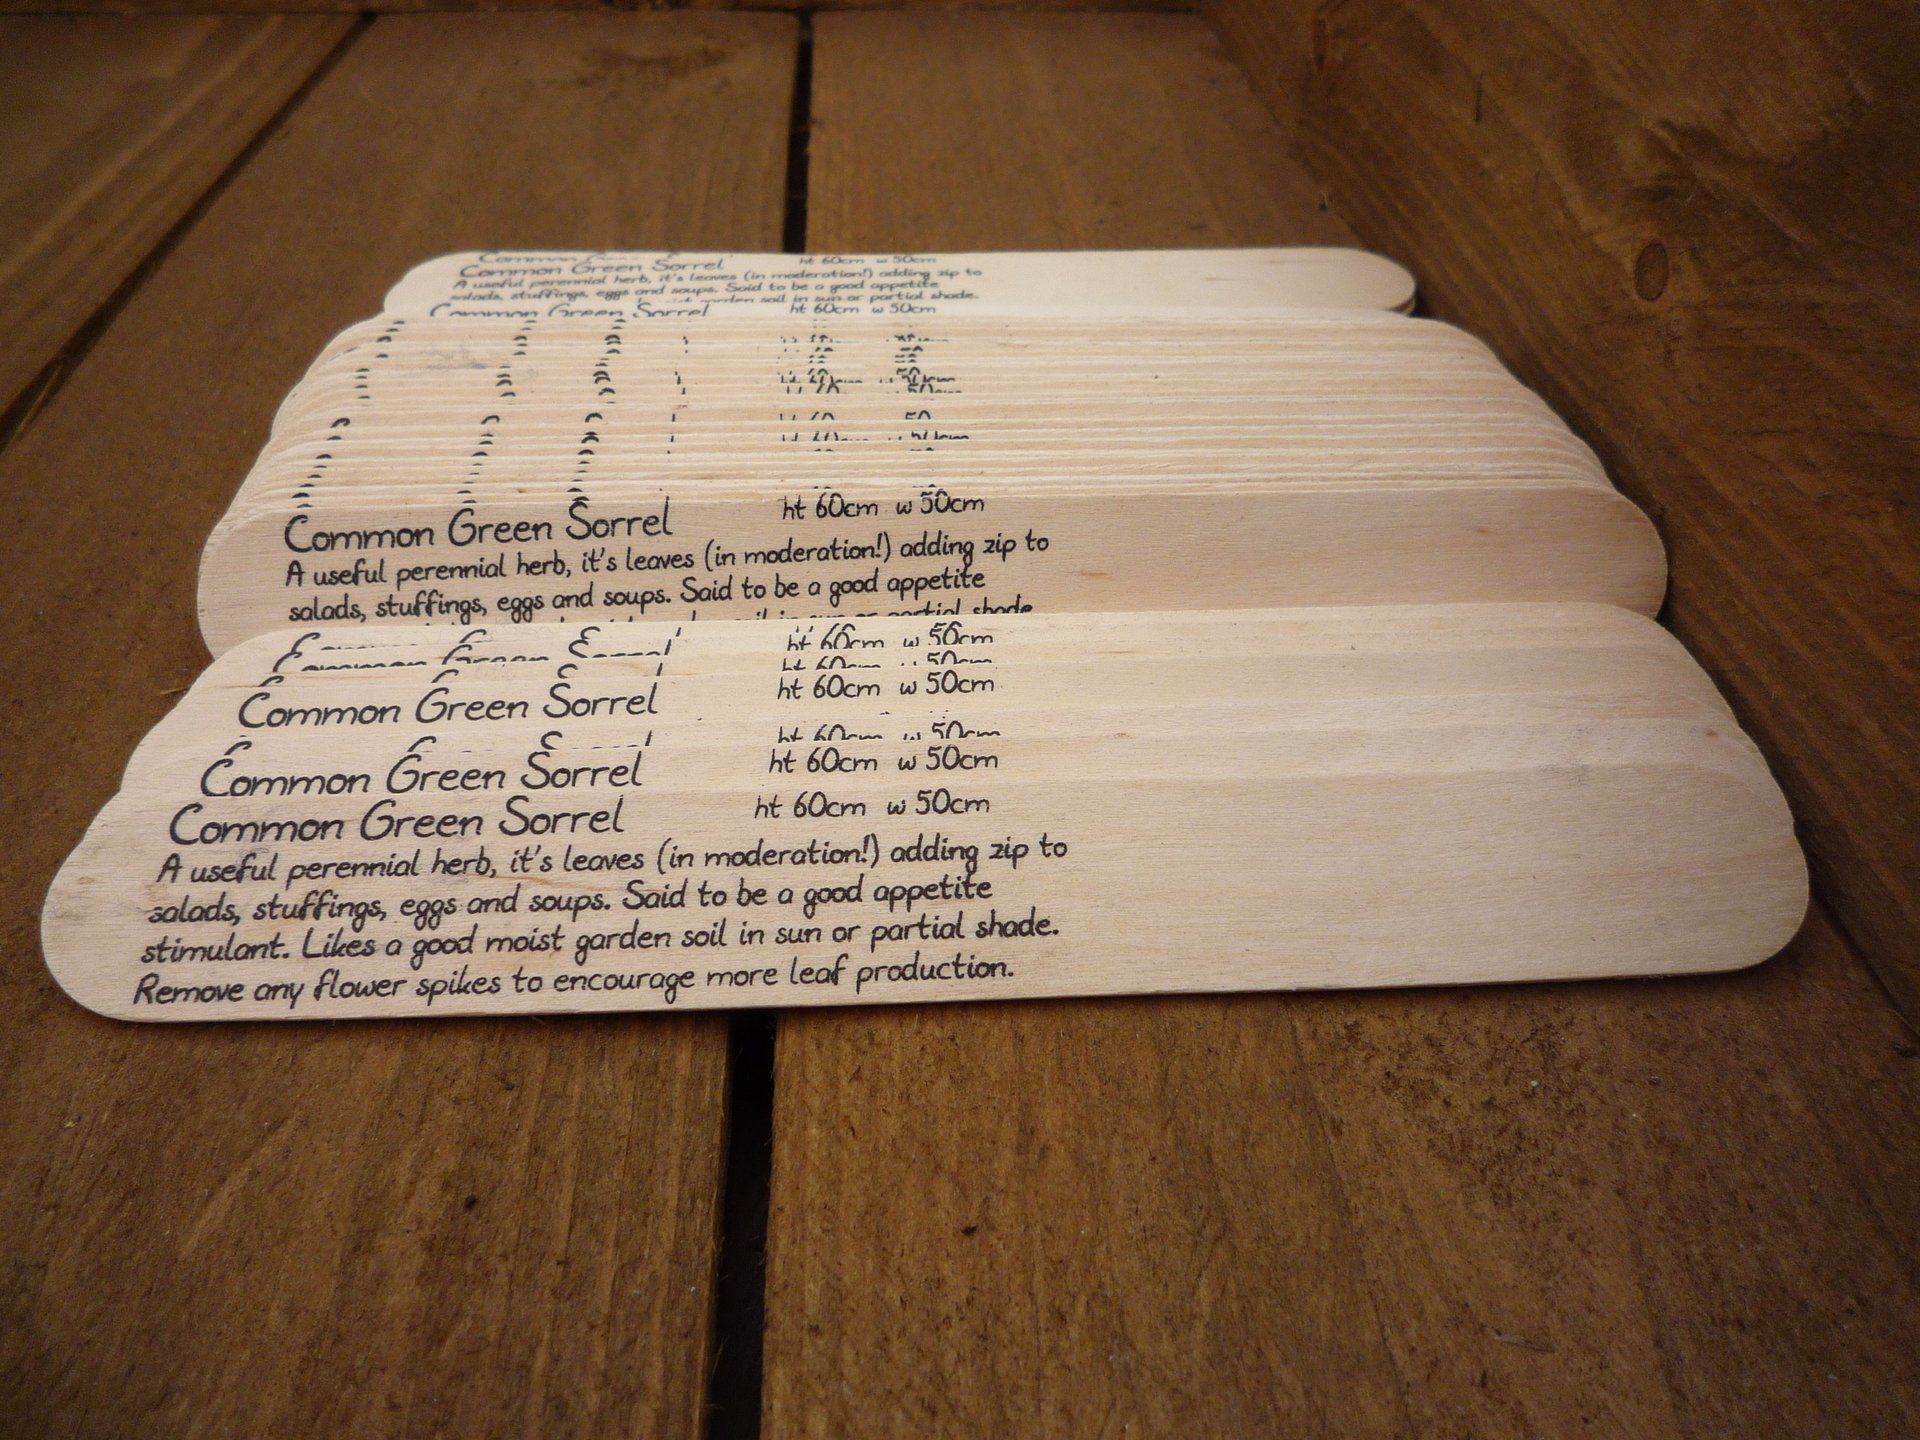 Common Green Sorrel ht 60cm w 50cm
Common Green Sorrel
A useful perennial herb, it's leaves (in moderation!) adding zip to
salads, stuffings, eggs and soups. Said to be a good appetite
garden soil in sun or partial shade.
Common Green Sorrel ht 60cm w 50cm
Common Green Sorrel ht 60cm w 50cm
A useful perennial herb, it's leaves (in moderation!) adding zip to
salads, stuffings, eggs and soups. Said to be a good appetite
soil in sun or partial shade
ht 60cm w 50cm
Common Green Sorrel ht 60cm w 50cm
Common Green Sorrel ht 60cm w 50cm
ht 60cm w 50cm
Common Green Sorrel ht 60cm w 50cm
Common Green Sorrel ht 60cm w 50cm
A useful perennial herb, it's leaves (in moderation!) adding zip to
salads, stuffings, eggs and soups. Said to be a good appetite
stimulant. Likes a good moist garden soil in sun or partial shade.
Remove any flower spikes to encourage more leaf production.